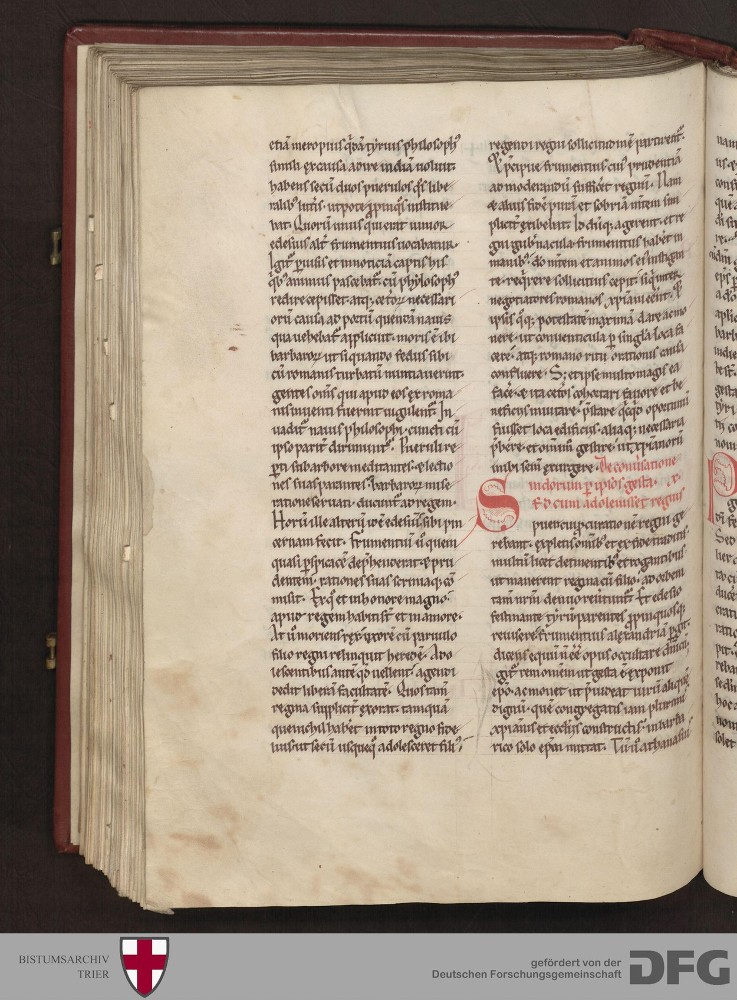 etiā meropius q̄dā tyrius philosophꝰ
simili ex causa adire indiā uoluit.
habens secū duos puerulos q̄s libe
ralibꝰ litt̄is. utpote ꝓpinq̄s instituē
bat. Quorū unus qui erat iunior
edesius alt̄ frumentius uocabatur.
Igit̄ ꝑuisis et in noticiā captis his
q̄bꝰ animus pascebat̄. cū phylosophꝰ
redire cepisset. atq; cet̄oꝝ necessari
orū causa ad portū quendā nauis
qua uehebat̄ applicuit. moris ē ibi
barbaroꝝ ut si quando fedus sibi
cū romanis turbatū nuntiauerint.
gentes om̄s qui apud eos ex roma
nis inuenti fuerint iugulent̄. In
uadit̄ nauis philosophi. cuncti cū
ipso parit̄ ꝑimunt̄. Pueruli re
ꝑti sub arbore meditantes. ⁊ lectio
nes suas parantes. barbaroꝝ mise
ratione seruati. ducunt̄ ad regem.
Horū ille alterū id ē edesiū sibi pin
cernam fecit. Frumentiū ū quem
quasi ꝑspicacē dep̄henderat. ⁊ pru
dentem. rationes suas scriniaq; cō
misit. Ex q̄ et in honore magno
apud regem habiti st̄ et in amore.
At ū moriens rex uxorē cū paruulo
filio regni relinquit heredē. Ado
lescentibus aut̄ q̄d uellent agendi
dedit liberā facultatē. Quos tam̄
regina suppliciter exorat. tamquā
quę nichil habet in toto regno fide
lius. ut secū usq̄quo adolesceret filiꝰ.
regendi regni sollicitudinē partirent̄.
⁊ p̄cipue frumentius. cuiꝰ prudentiā
ad moderandū sufficeret regnū. Nam
⁊ alius fidē purā et sobriā m̄tem sim
plicit̄ exibebat. Id dūq; agerent. et re
gni gub̄nacula frumentius habēt in
manibꝰ. dō m̄tem et animos eiꝰ instigan
te. req̄rere sollicitius cepit. siq̄ inter
negotiatores romanos. xp̄iani eēnt. ⁊
ipsis q̄q; potestatē maximā dare ac mo
nere. ut conuenticula ꝑ singla loca fa
cerē. atq; romano ritu orationis causa
confluere. S; et ipse multo magis ea
facē. ⁊ ita cet̄os cohortari fauore et be
neficiis inuitare. p̄stare q̄cq̄d oportuni
fuisset loca edificiis. aliaq; necessaria
p̄bere. et omnim̄ gestire. ut xp̄ianorū
inibi sem̄ exurgere. De conuersatione
indorum ꝑ ipsos gesta. x.
SEd cum adolevisset regius
puer cuiꝰ curationē regni ge
rebant. expletis om̄ibꝰ et ex fide traditis.
multū licet detinentibꝰ et rogantibus
ut manerent regina cū filio. ad orbem
tam̄ nr̄m denuo reūtunt̄. Et edesio
festinante tyrū parentes ꝓpinquosq;
reuisere. frumentius alexandriā ꝑgit.
dicens equū n̄ eē opus occultare dn̄icū.
Igit̄ rem omēm ut gesta ē exponit
ep̄o. ac monet ut ꝓuideat uirū aliquē
dignū. quē congregatis iam plurimis
xp̄ianis. et eccl̄iis constructis in barba
rico solo ep̄m mittat. Tū ū athanasiꝰ
BISTUMSARCHIV
TRIER
gefördert von der
Deutschen Forschungsgemeinschaft
DFG